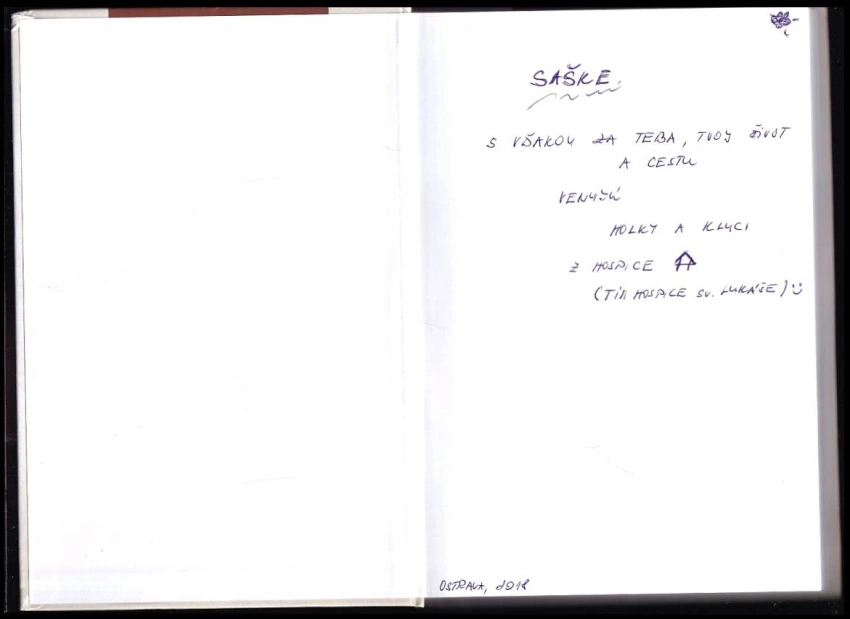 SAŠKE,
S VĎAKOU ZA TEBA, TVOJ ŽIVOT
A CESTU
VENUJÚ
HOLKY A KLUCI
Z HOSPICE
(TÍM HOSPICE SV. LUKÁŠE) :)
OSTRAVA, 2018